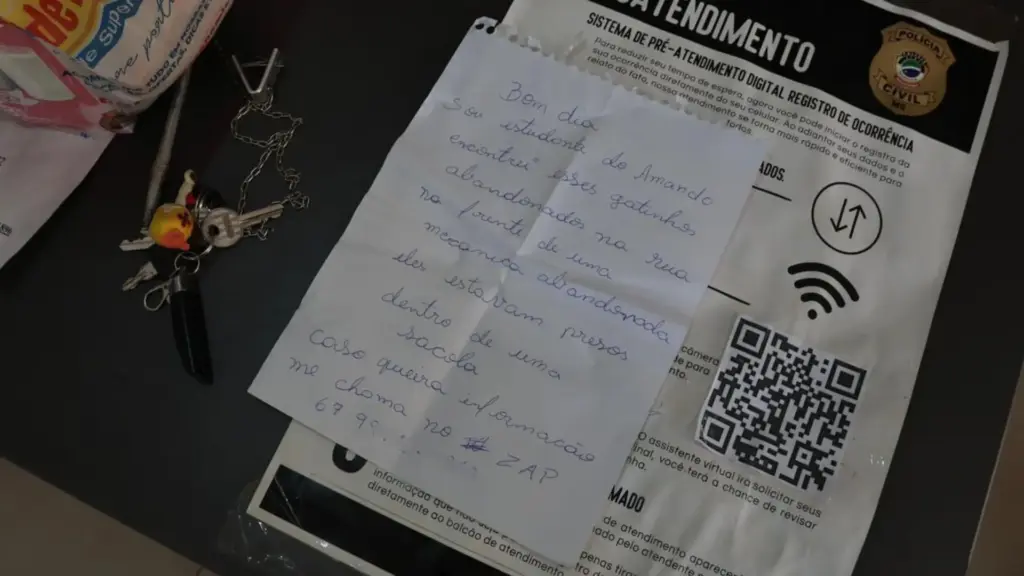 de
e supor
ATENDIMENTO
SISTEMA DE PRÉ-ATENDIMENTO DIGITAL REGISTRO DE OCORRÊNCIA
Para reduzir seu tempo de espera, agora você pode iniciar o registro da
sua ocorrência diretamente do seu celular. Ao adiantar seus dados e o
relato do fato, nosso atendimento se torna mais rápido e eficiente para
todos.
POLÍCIA
CIVIL
MS
Bom dia
sou estudante do Amando
encontrui esses gatinhos
abandonados na rua
na frente de uma
mecanica abandonada
eles estavam presos
dentro de uma
sacola
caso queira informação
me chama no ZAP
67 99.........
ADOS
câmera
de para
nto.
O assistente virtual irá solicitar seus
inal, você terá a chance de revisar
nha.
MADO
de atendimento aparecer
ado pelo atendente
penas
informação que não
diretamente ao balcão de atendimento.